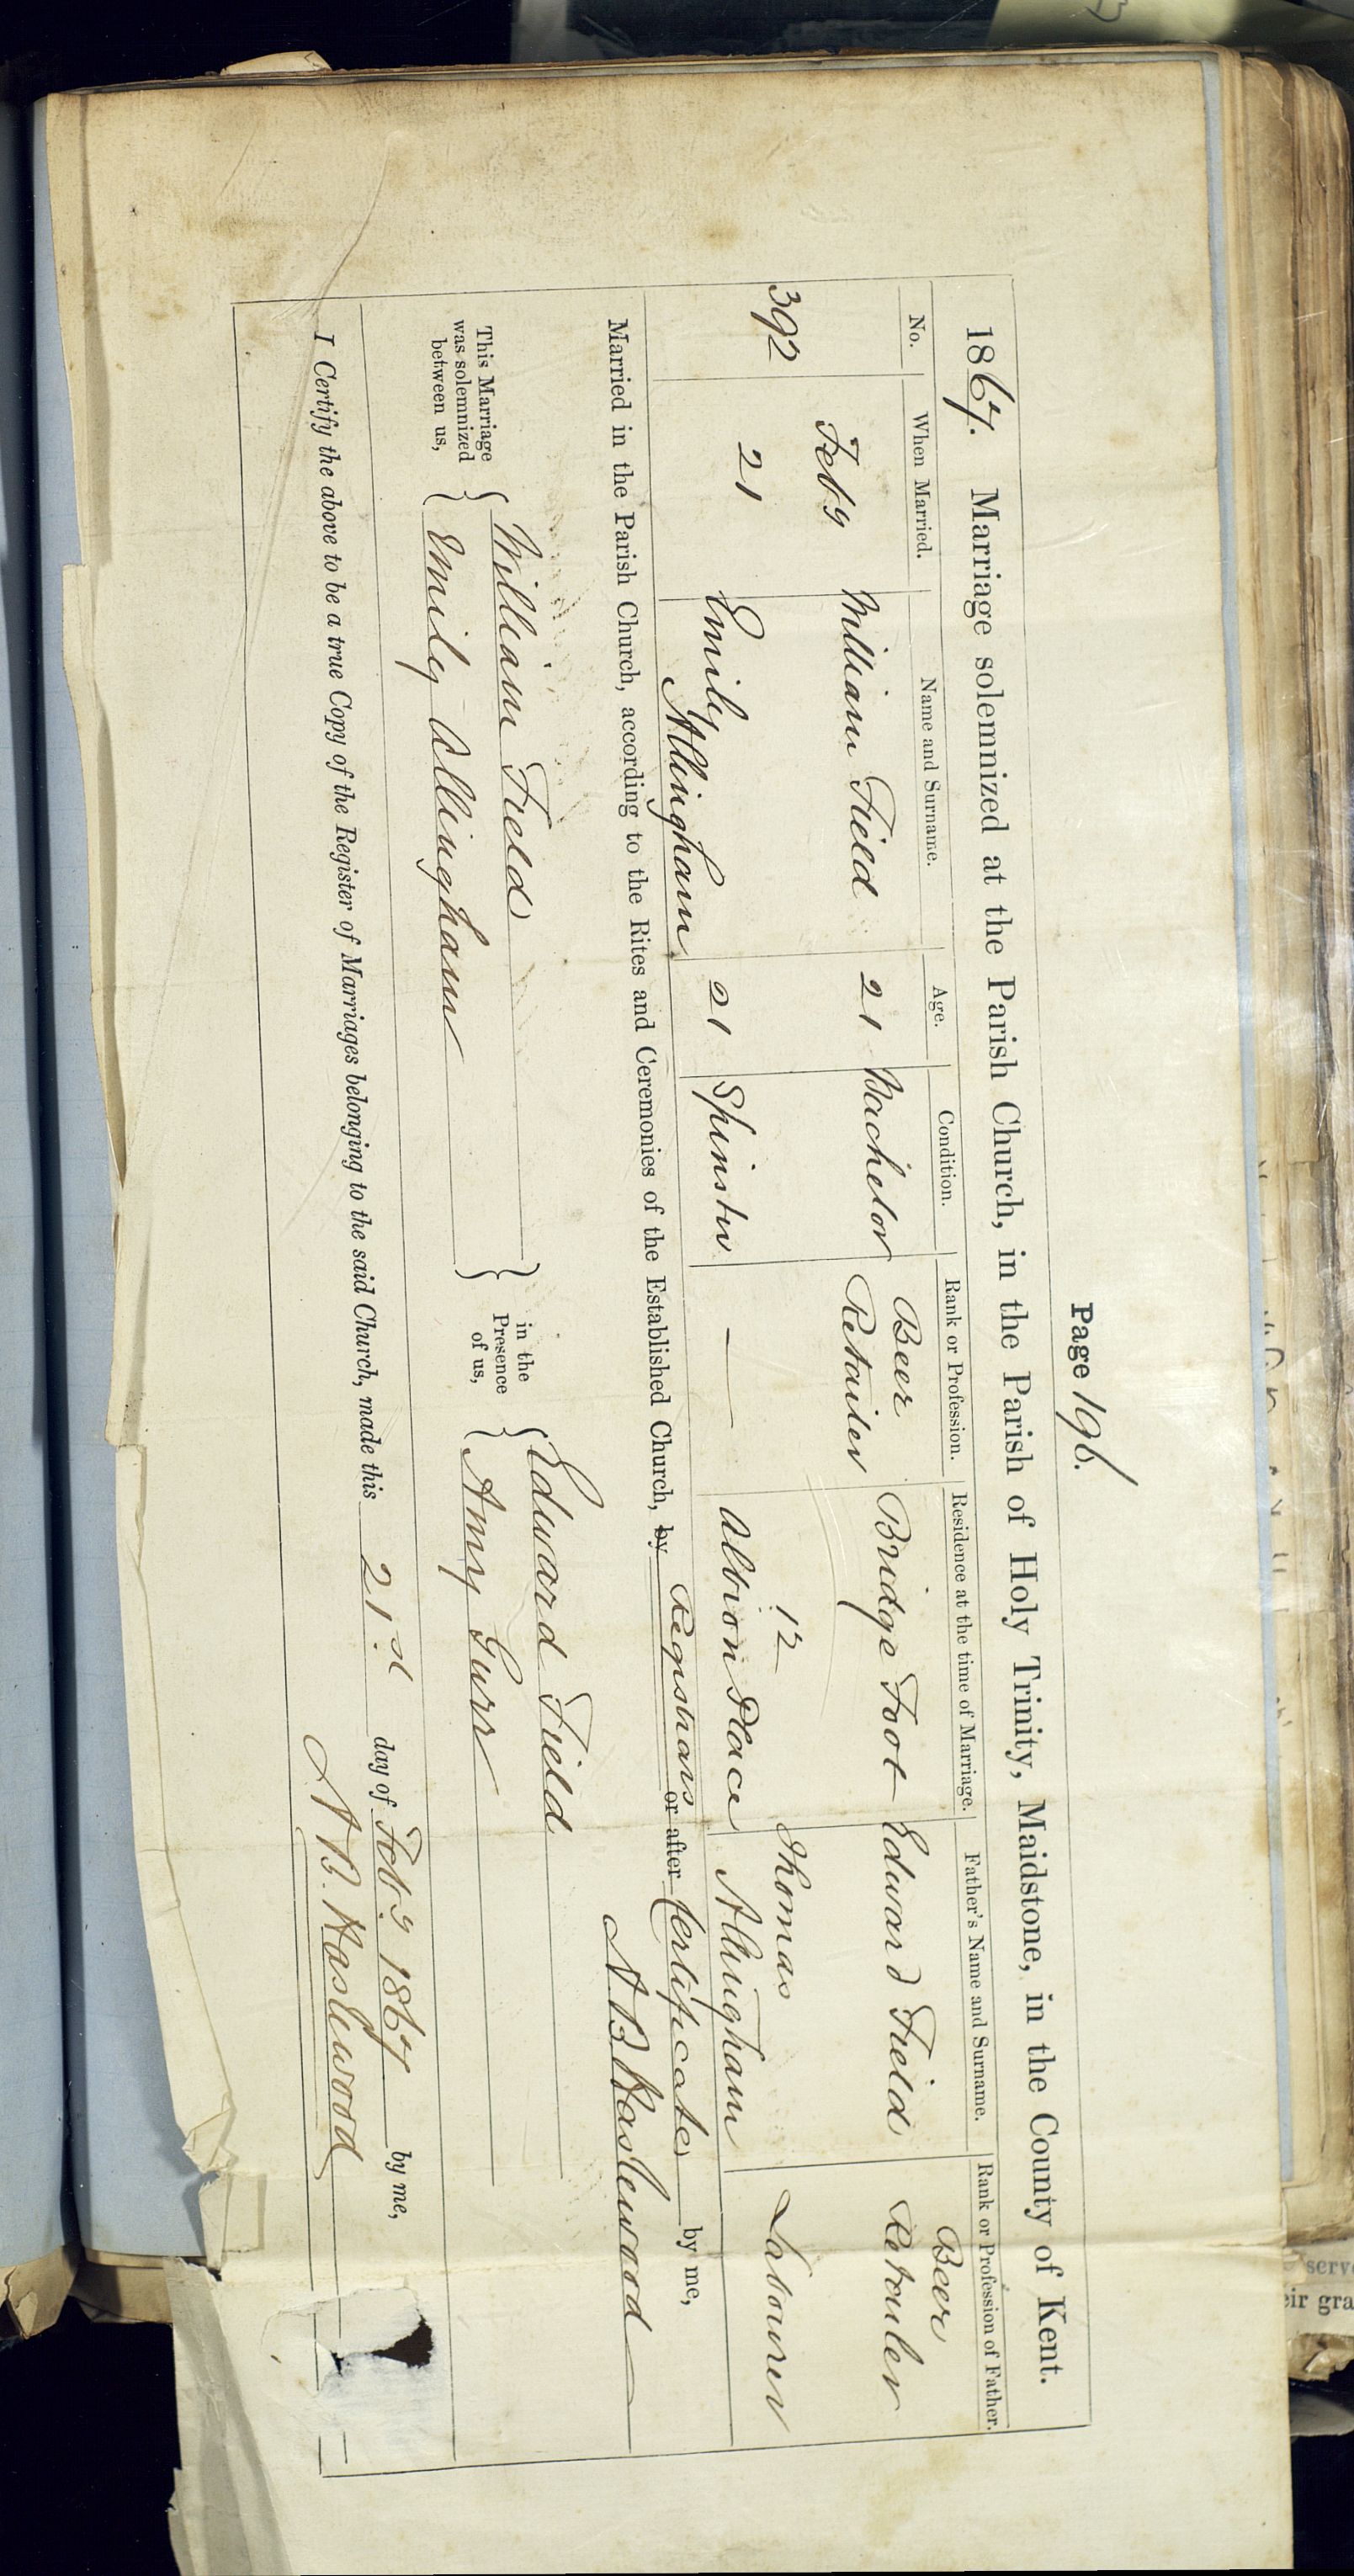 Page 196.
1867. Marriage solemnized at the Parish Church, in the Parish of Holy Trinity, Maidstone, in the County of Kent.
No. When Married. Name and Surname. Age. Condition. Rank or Profession. Residence at the time of Marriage. Father's Name and Surname. Rank or Profession of Father.
392 Feby 21 William Field 21 Bachelor Beer Retailer Bridge Foot Edward Field Beer Retailer
Emily Allingham 21 Spinster — 12 Albion Place Thomas Allingham Labourer
Married in the Parish Church, according to the Rites and Ceremonies of the Established Church, by Registrars or after Certificate by me,
A B Haslewood
This Marriage was solemnized between us, { William Field } in the Presence of us, { Edward Field
{ Emily Allingham } { Amy Gurr
I Certify the above to be a true Copy of the Register of Marriages belonging to the said Church, made this 21st day of Feby 1867 by me,
A B. Haslewood
serve
eir gra